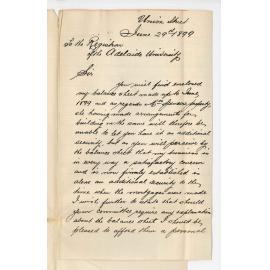 Union Street
June 29th 1899
To the Registrar
of the Adelaide University
Sir
You will find enclosed
my balance sheet made up to June,
1899 and as regards Mrs property
she having made arrangements for
building on the same will thereby be
unable to let you have it as additional
security, but as you will perceive by
the balance sheet that my business is
in every way a satisfactory concern
and is now firmly established is
alone an additional security to the
time when the mortgage was made
I wish further to state that should
your Committee require any explanation
about the balance sheet I should be
pleased to afford them a personal